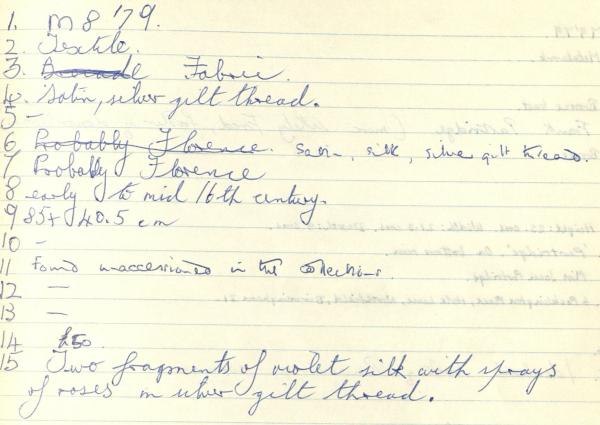 1. M 8 '79.
2. Textile.
3. Brocade Fabric.
4. Satin, silver gilt thread.
5 -
6 Probably Florence. Satin, silk, silver gilt thread.
7 Probably Florence
8 early to mid 16th century.
9 85 + 40.5 cm
10 -
11 Found unaccessioned in the collections.
12 -
13 -
14 £50
15 Two fragments of violet silk with sprays
of roses in silver gilt thread.